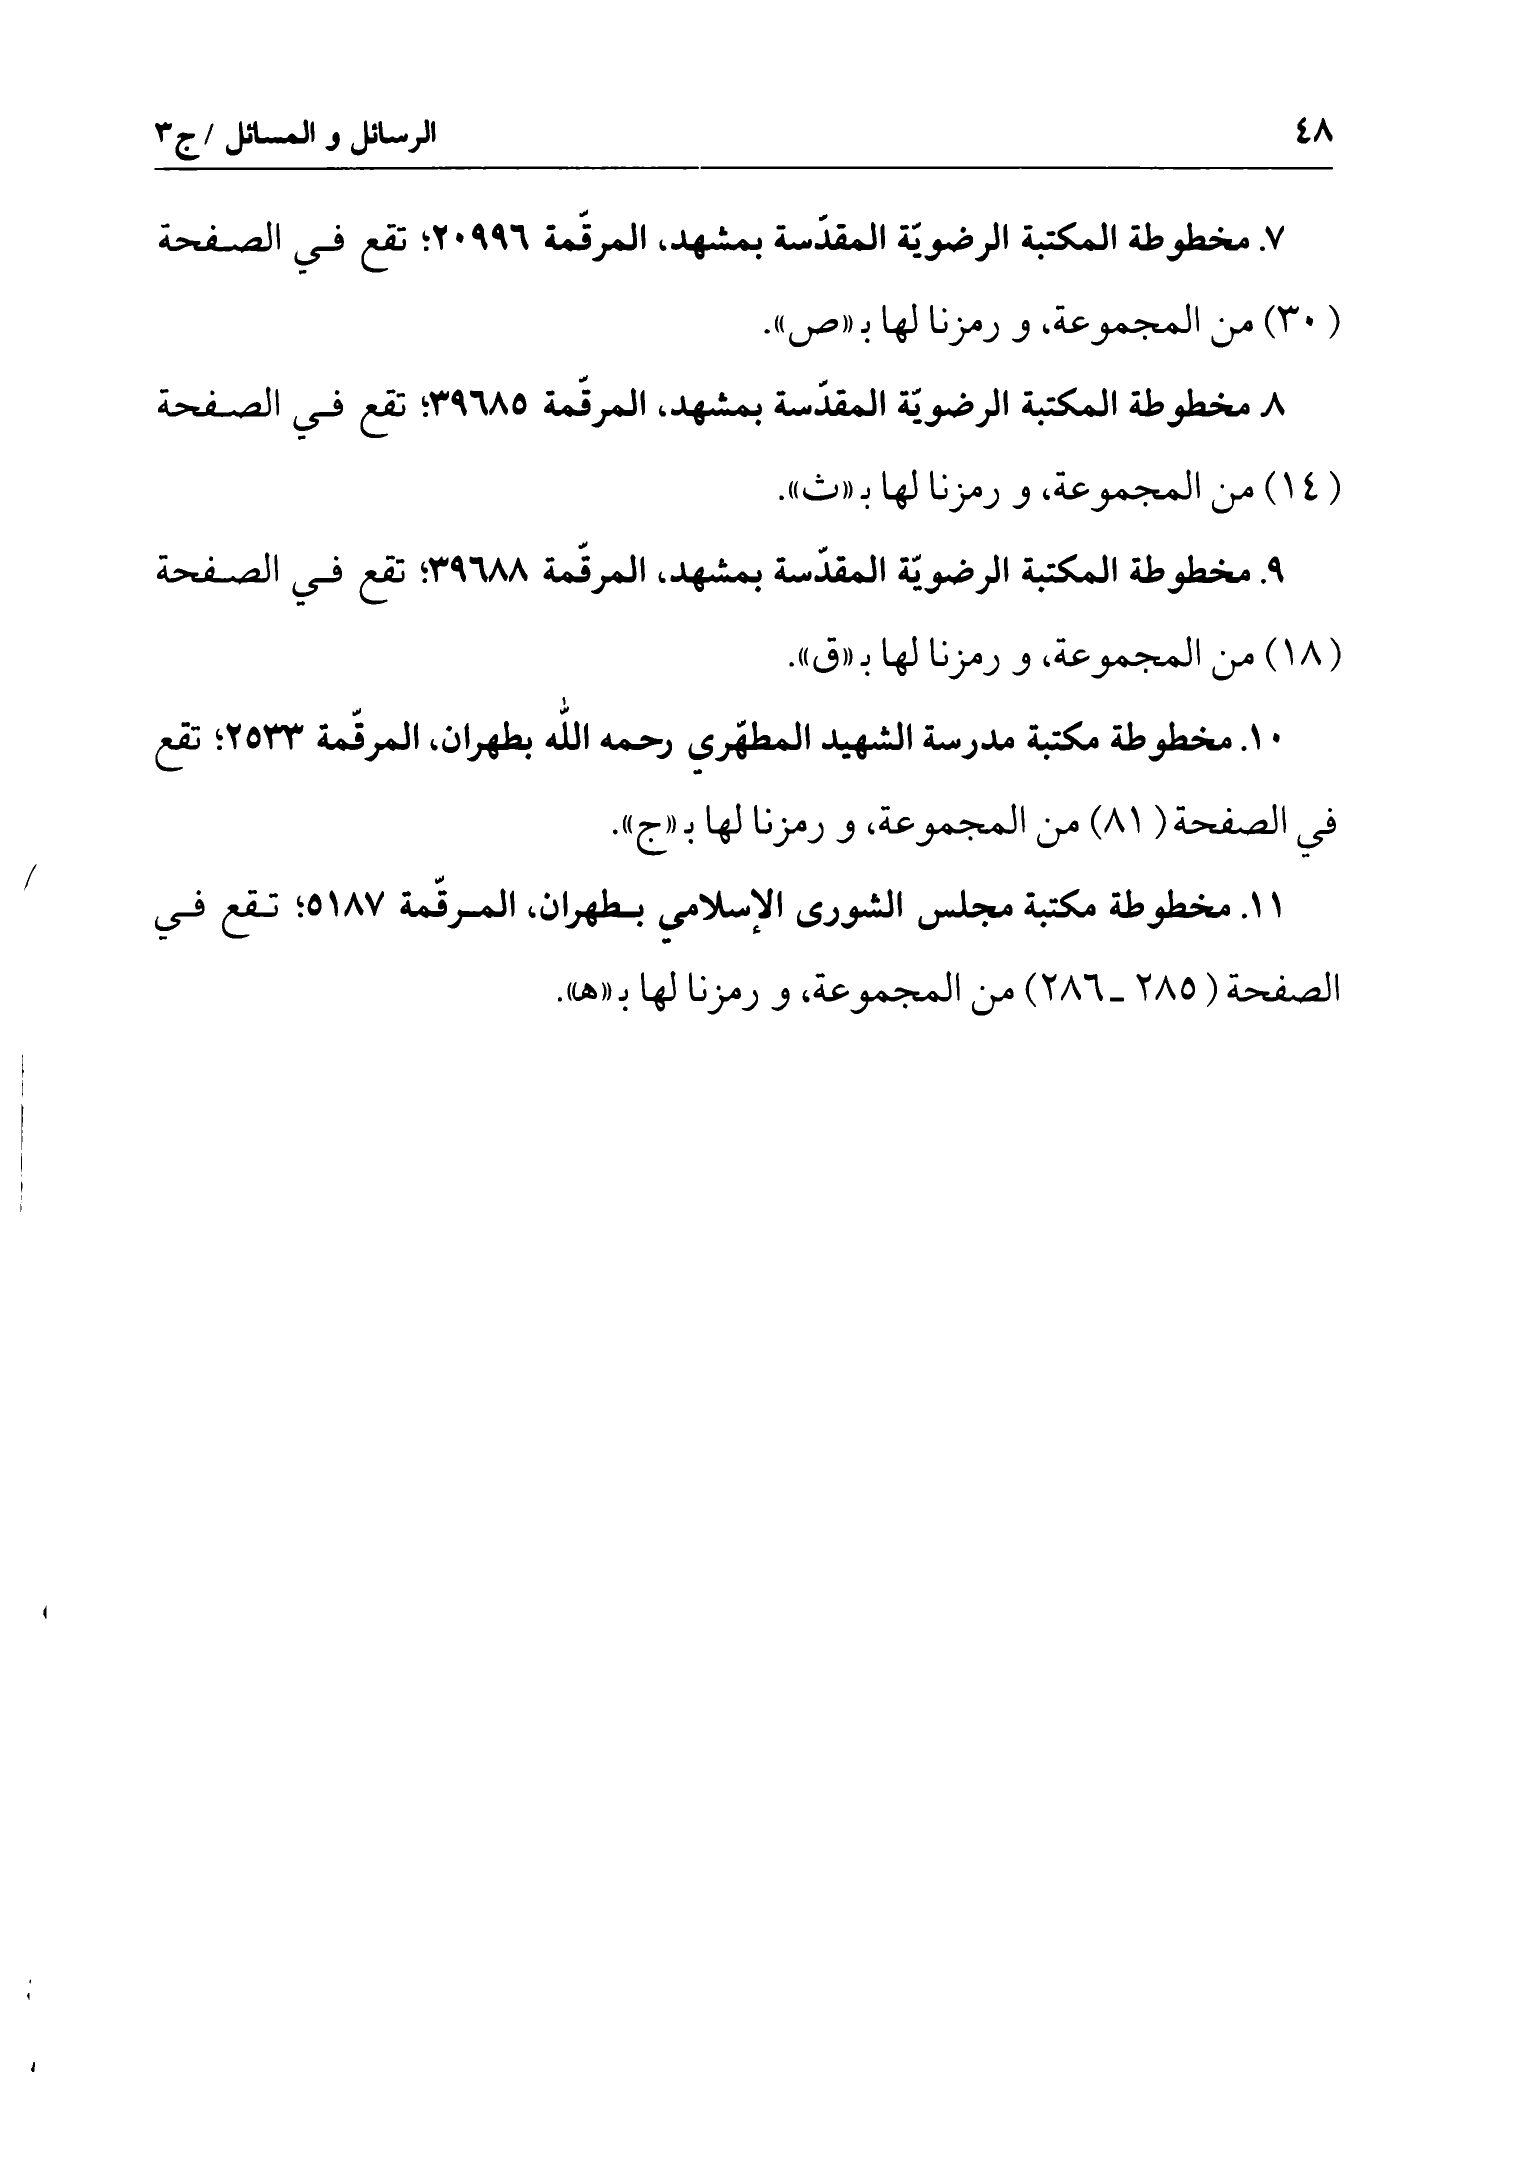 ٤٨ الرسائل و المسائل / ج٣
٧. مخطوطة المكتبة الرضويّة المقدّسة بمشهد، المرقّمة ٢٠٩٩٦؛ تقع في الصفحة
(٣٠) من المجموعة، و رمزنا لها بـ «ص».
٨. مخطوطة المكتبة الرضويّة المقدّسة بمشهد، المرقّمة ٣٩٦٨٥؛ تقع في الصفحة
(١٤) من المجموعة، و رمزنا لها بـ «ث».
٩. مخطوطة المكتبة الرضويّة المقدّسة بمشهد، المرقّمة ٣٩٦٨٨؛ تقع في الصفحة
(١٨) من المجموعة، و رمزنا لها بـ «ق».
١٠. مخطوطة مكتبة مدرسة الشهيد المطهّري رحمه الله بطهران، المرقّمة ٢٥٣٣؛ تقع
في الصفحة (٨١) من المجموعة، و رمزنا لها بـ «ج».
١١. مخطوطة مكتبة مجلس الشورى الإسلامي بطهران، المرقّمة ٥١٨٧؛ تقع في
الصفحة (٢٨٥ ـ ٢٨٦) من المجموعة، و رمزنا لها بـ «ها».